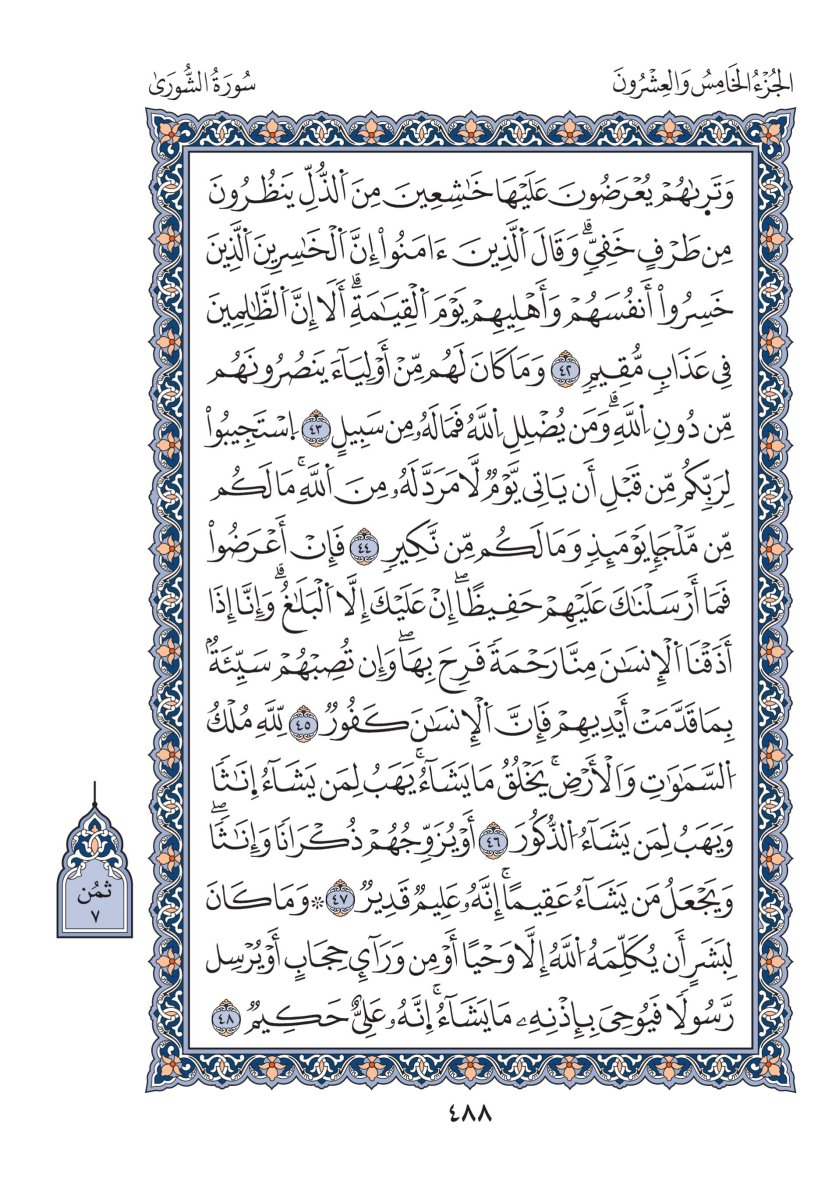 الجُزْءُ الخَامِسُ وَالعِشْرُونَ
سُورَةُ الشُّورَىٰ
وَتَر۪ىٰهُمْ يُعْرَضُونَ عَلَيْهَا خَٰشِعِينَ مِنَ اَ۬لذُّلِّ يَنظُرُونَ
مِن طَرْفٍ خَفِيّٖۗ وَقَالَ اَ۬لذِينَ ءَامَنُوٓاْ إِنَّ اَ۬لْخَٰسِرِينَ اَ۬لذِينَ
خَسِرُوٓاْ أَنفُسَهُمْ وَأَهْلِيهِمْ يَوْمَ اَ۬لْقِيَٰمَةِۗ أَلَآ إِنَّ اَ۬لظَّٰلِمِينَ
فِي عَذَابٖ مُّقِيمٖ ٤٢ وَمَا كَانَ لَهُم مِّنْ أَوْلِيَآءَ يَنصُرُونَهُم
مِّن دُونِ اِ۬للَّهِۗ وَمَن يُضْلِلِ اِ۬للَّهُ فَمَا لَهُۥ مِن سَبِيلٍ ٤٣ اِ۪سْتَجِيبُواْ
لِرَبِّكُم مِّن قَبْلِ أَن يَاتِيَ يَوْمٞ لَّا مَرَدَّ لَهُۥ مِنَ اَ۬للَّهِۚ مَا لَكُم
مِّن مَّلْجَإٖ يَوْمَئِذٖ وَمَا لَكُم مِّن نَّكِيرٖ ٤٤ فَإِنْ أَعْرَضُواْ
فَمَآ أَرْسَلْنَٰكَ عَلَيْهِمْ حَفِيظًاۖ إِنْ عَلَيْكَ إِلَّا اَ۬لْبَلَٰغُۗ وَإِنَّآ إِذَآ
أَذَقْنَا اَ۬لْإِنسَٰنَ مِنَّا رَحْمَةٗ فَرِحَ بِهَاۖ وَإِن تُصِبْهُمْ سَيِّئَةُۢ
بِمَا قَدَّمَتْ أَيْدِيهِمْ فَإِنَّ اَ۬لْإِنسَٰنَ كَفُورٞ ٤٥ لِّلهِ مُلْكُ
اُ۬لسَّمَٰوَٰتِ وَالْأَرْضِۚ يَخْلُقُ مَا يَشَآءُۚ يَهَبُ لِمَن يَشَآءُ إِنَٰثٗا
وَيَهَبُ لِمَن يَشَآءُ اُ۬لذُّكُورَ ٤٦ أَوْ يُزَوِّجُهُمْ ذُكْرَانٗا وَإِنَٰثٗاۖ
وَيَجْعَلُ مَن يَشَآءُ عَقِيمًاۚ إِنَّهُۥ عَلِيمٞ قَدِيرٞ ٤٧ * وَمَا كَانَ
لِبَشَرٍ أَن يُكَلِّمَهُ اُ۬للَّهُ إِلَّا وَحْيًا أَوْ مِن وَرَآءِےْ حِجَابٍ أَوْ يُرْسِلَ
رَسُولٗا فَيُوحِيَ بِإِذْنِهِۦ مَا يَشَآءُۚ إِنَّهُۥ عَلِيٌّ حَكِيمٞ ٤٨
ثمُن
٧
٤٨٨